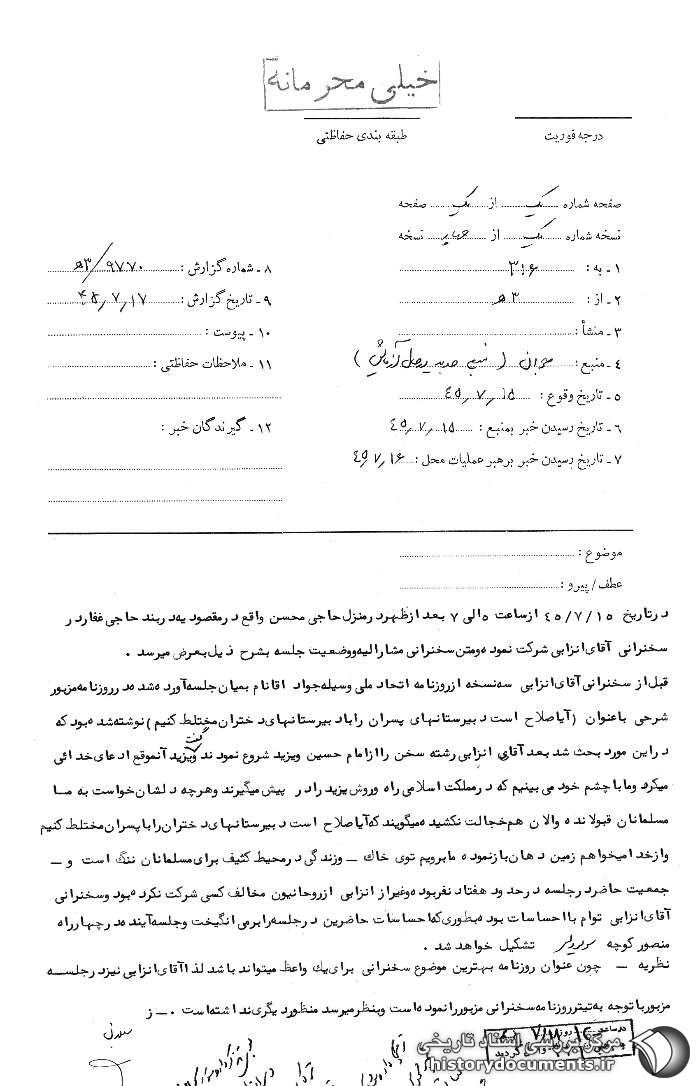 خیلی محرمانه
درجه فوریت
طبقه بندی حفاظتی
صفحه شماره یک از یک صفحه
نسخه شماره یک از چهار نسخه
۱ - به : ۳۱۶
۲ - از : ۳ ه
۳ - منشأ :
۴ - منبع :
۵ - تاریخ وقوع : ۴۵/۷/۱۵
۶ - تاریخ رسیدن خبر بمنبع : ۴۵/۷/۱۵
۷ - تاریخ رسیدن خبر برهبر عملیات محل : ۴۵/۷/۱۶
۸ - شماره گزارش : ۹۷۷۰/۳ ه
۹ - تاریخ گزارش : ۴۵/۷/۱۷
۱۰ - پیوست :
۱۱ - ملاحظات حفاظتی :
۱۲ - گیرندگان خبر :
موضوع :
عطف / پیرو :
درتاریخ ۴۵/۷/۱۵ ازساعت ۵ الی ۷ بعد ازظهر درمنزل حاجی محسن واقع درمقصودیه دربند حاجی غفار در
سخنرانی آقای انزابی شرکت نموده ومتن سخنرانی مشارالیه ووضعیت جلسه بشرح ذیل بعرض میرسد .
قبل از سخنرانی آقای انزابی سه نسخه ازروزنامه اتحاد ملی وسیله جواد اقانام بمیان جلسه آورده شد ه درروزنامه مزبور
شرحی باعنوان (آیاصلاح است دبیرستانهای پسران راباد بیرستانهای دختران مختلط کنیم) نوشته شده بود که
دراین مورد بحث شد بعد آقای انزابی رشته سخن راازامام حسین ویزید شروع نمودند گفت ویزید آنموقع ادعای خدائی
میکرد وما با چشم خود می بینیم که درمملکت اسلامی راه وروش یزید رادر پیش میگیرند وهرچه دلشان خواست به مــا
مسلمانان قبولاندهوالان هم خجالت نکشیده میگویند که آیاصلاح است دبیرستانهای دختران رابا پسران مختلط کنیم
وازخدا میخواهم زمین دهان بازنموده مابرویم توی خاك ـ وزندگی درمحیط کثیف برای مسلمانان ننگ است و ـ
جمعیت حاضر درجلسه درحدود هفتاد نفربوده وغیراز انزابی ازروحانیون مخالف کسی شرکت نکرده بود وسخنرانی
آقای انزابی توام بااحساسات بوده بطوریکه احساسات حاضرین درجلسه رابرمی انگیخت وجلسه آینده درچهارراه
منصور کوچه تشکیل خواهد شد .
نظریه ـ چون عنوان روزنامه بهترین موضوع سخنرانی برای یك واعظ میتواند باشد لذاآقای انزابی نیزدرجلســه
مزبورباتوجه به تیترروزنامه سخنرانی مزبوررانموده است وبنظرمیرسد منظور دیگری نداشته است . ـ ز
مرکز بررسی اسناد تاریخی
historydocuments.ir